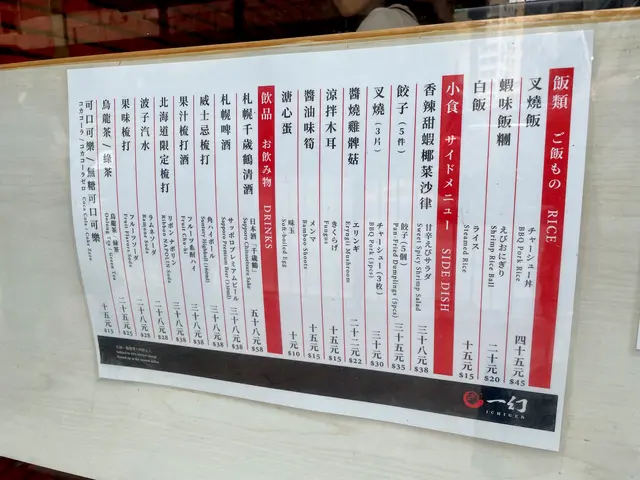 飯類 ご飯もの RICE
叉燒飯 チャーシュー丼 BBQ Pork Rice 四十五元 $45
蝦味飯糰 えびおにぎり Shrimp Rice Ball 二十元 $20
白飯 ライス Steamed Rice 十五元 $15
小食 サイドメニュー SIDE DISH
香辣甜蝦椰菜沙律 甘辛えびサラダ Sweet Spicy Shrimp Salad 三十八元 $38
餃子（5件） 餃子（5個） Pan-Fried Dumplings (5pcs) 三十五元 $35
叉燒（3片） チャーシュー（3枚） BBQ Pork (3pcs) 三十元 $30
醬燒雞髀菇 エリンギ Eryngii Mushroom 二十二元 $22
涼拌木耳 きくらげ Fungus 十五元 $15
醬油味筍 メンマ Bamboo Shoots 十五元 $15
溏心蛋 味玉 Soft-boiled Egg 十元 $10
飲品 お飲み物 DRINKS
札幌千歲鶴清酒 日本酒「千歳鶴」 Sapporo Chitosetsuru Sake 五十八元 $58
札幌啤酒 サッポロプレミアムビール Sapporo Premium Beer 三十八元 $38
威士忌梳打 角ハイボール Suntory Highball 三十八元 $38
果汁梳打酒 フルーツ系酎ハイ Fruit Chu-hi 三十八元 $38
北海道限定梳打 リボンナポリン Ribbon NAPOLIN Soda 二十八元 $28
波子汽水 ラムネソーダ Ramune Soda 二十八元 $28
果味梳打 フルーツソーダ Fruit Flavored Soda 二十五元 $25
烏龍茶/綠茶 烏龍茶/緑茶 Oolong Tea / Green Tea 十五元 $15
可口可樂/無糖可口可樂 コカコーラ/コカコーラゼロ Coca Cola / Coke Zero 十五元 $15
一幻
ICHIGEN